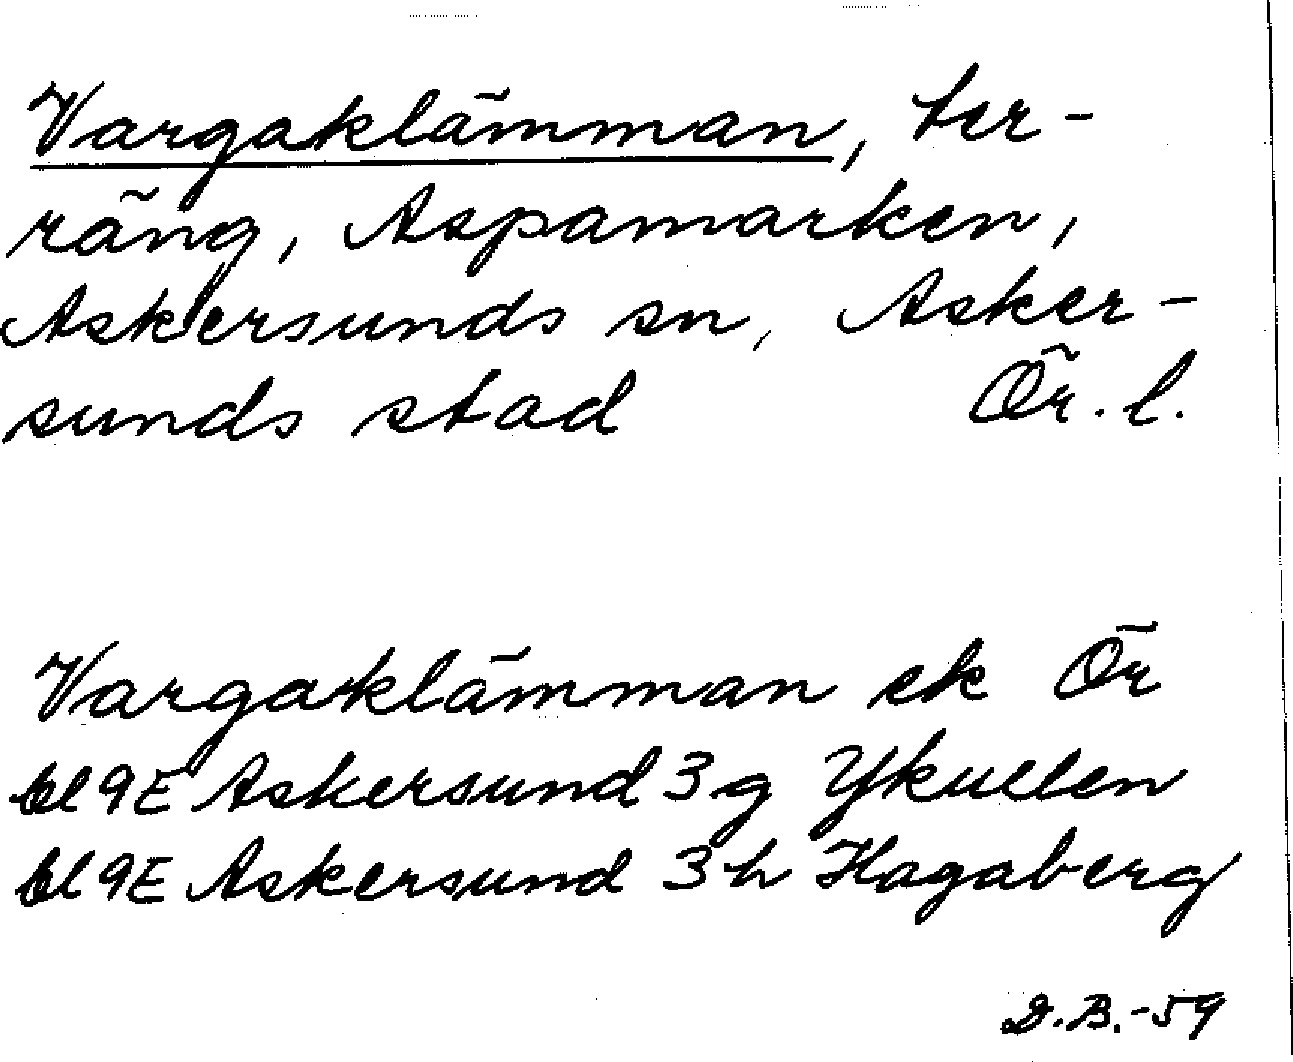 Vargaklämman, ter-
räng, Aspamarken,
Askersunds sn, Asker-
sunds stad Ör. l.
Vargaklämman ek Ör
bl 9E Askersund 3g Ykullen
bl 9E Askersund 3h Hagaberg
D.B.-59